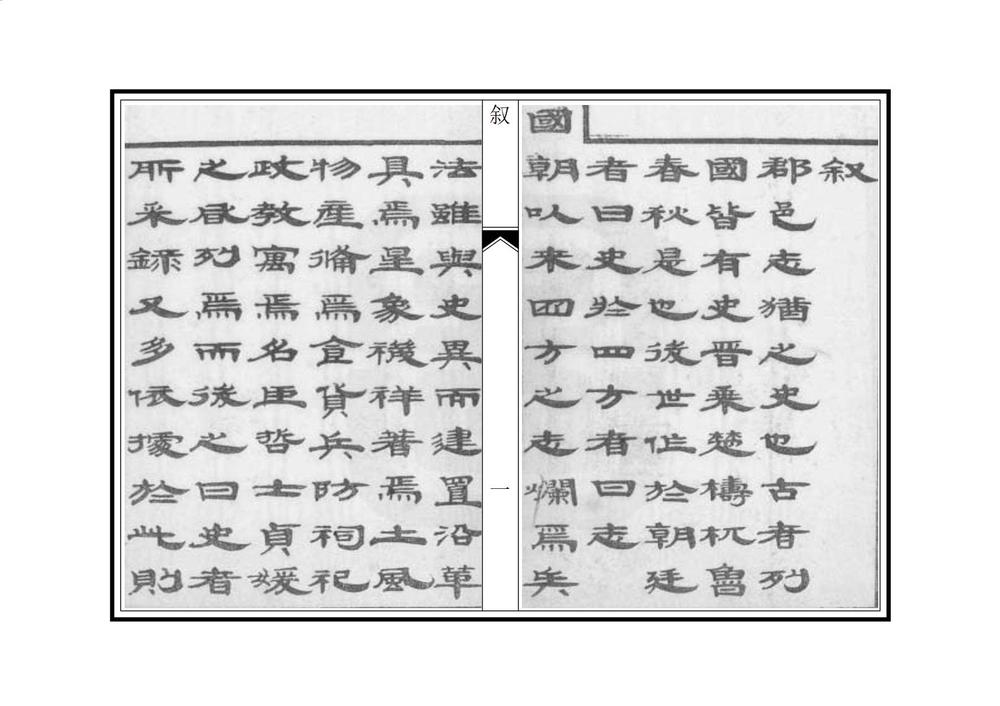 叙
郡邑志猶之史也古者列
國皆有史晉乗楚檮杌魯
春秋是也後世作於朝廷
者曰史於四方者曰志
國朝以来四方之志爛焉矣
叙
一
法雖與史異而建置沿革
具焉星象禨祥著焉土風
物產俻焉食貨兵防祠祀
政教寓焉名臣哲士貞媛
之列焉而後之曰史者
所采録又多依據於此則